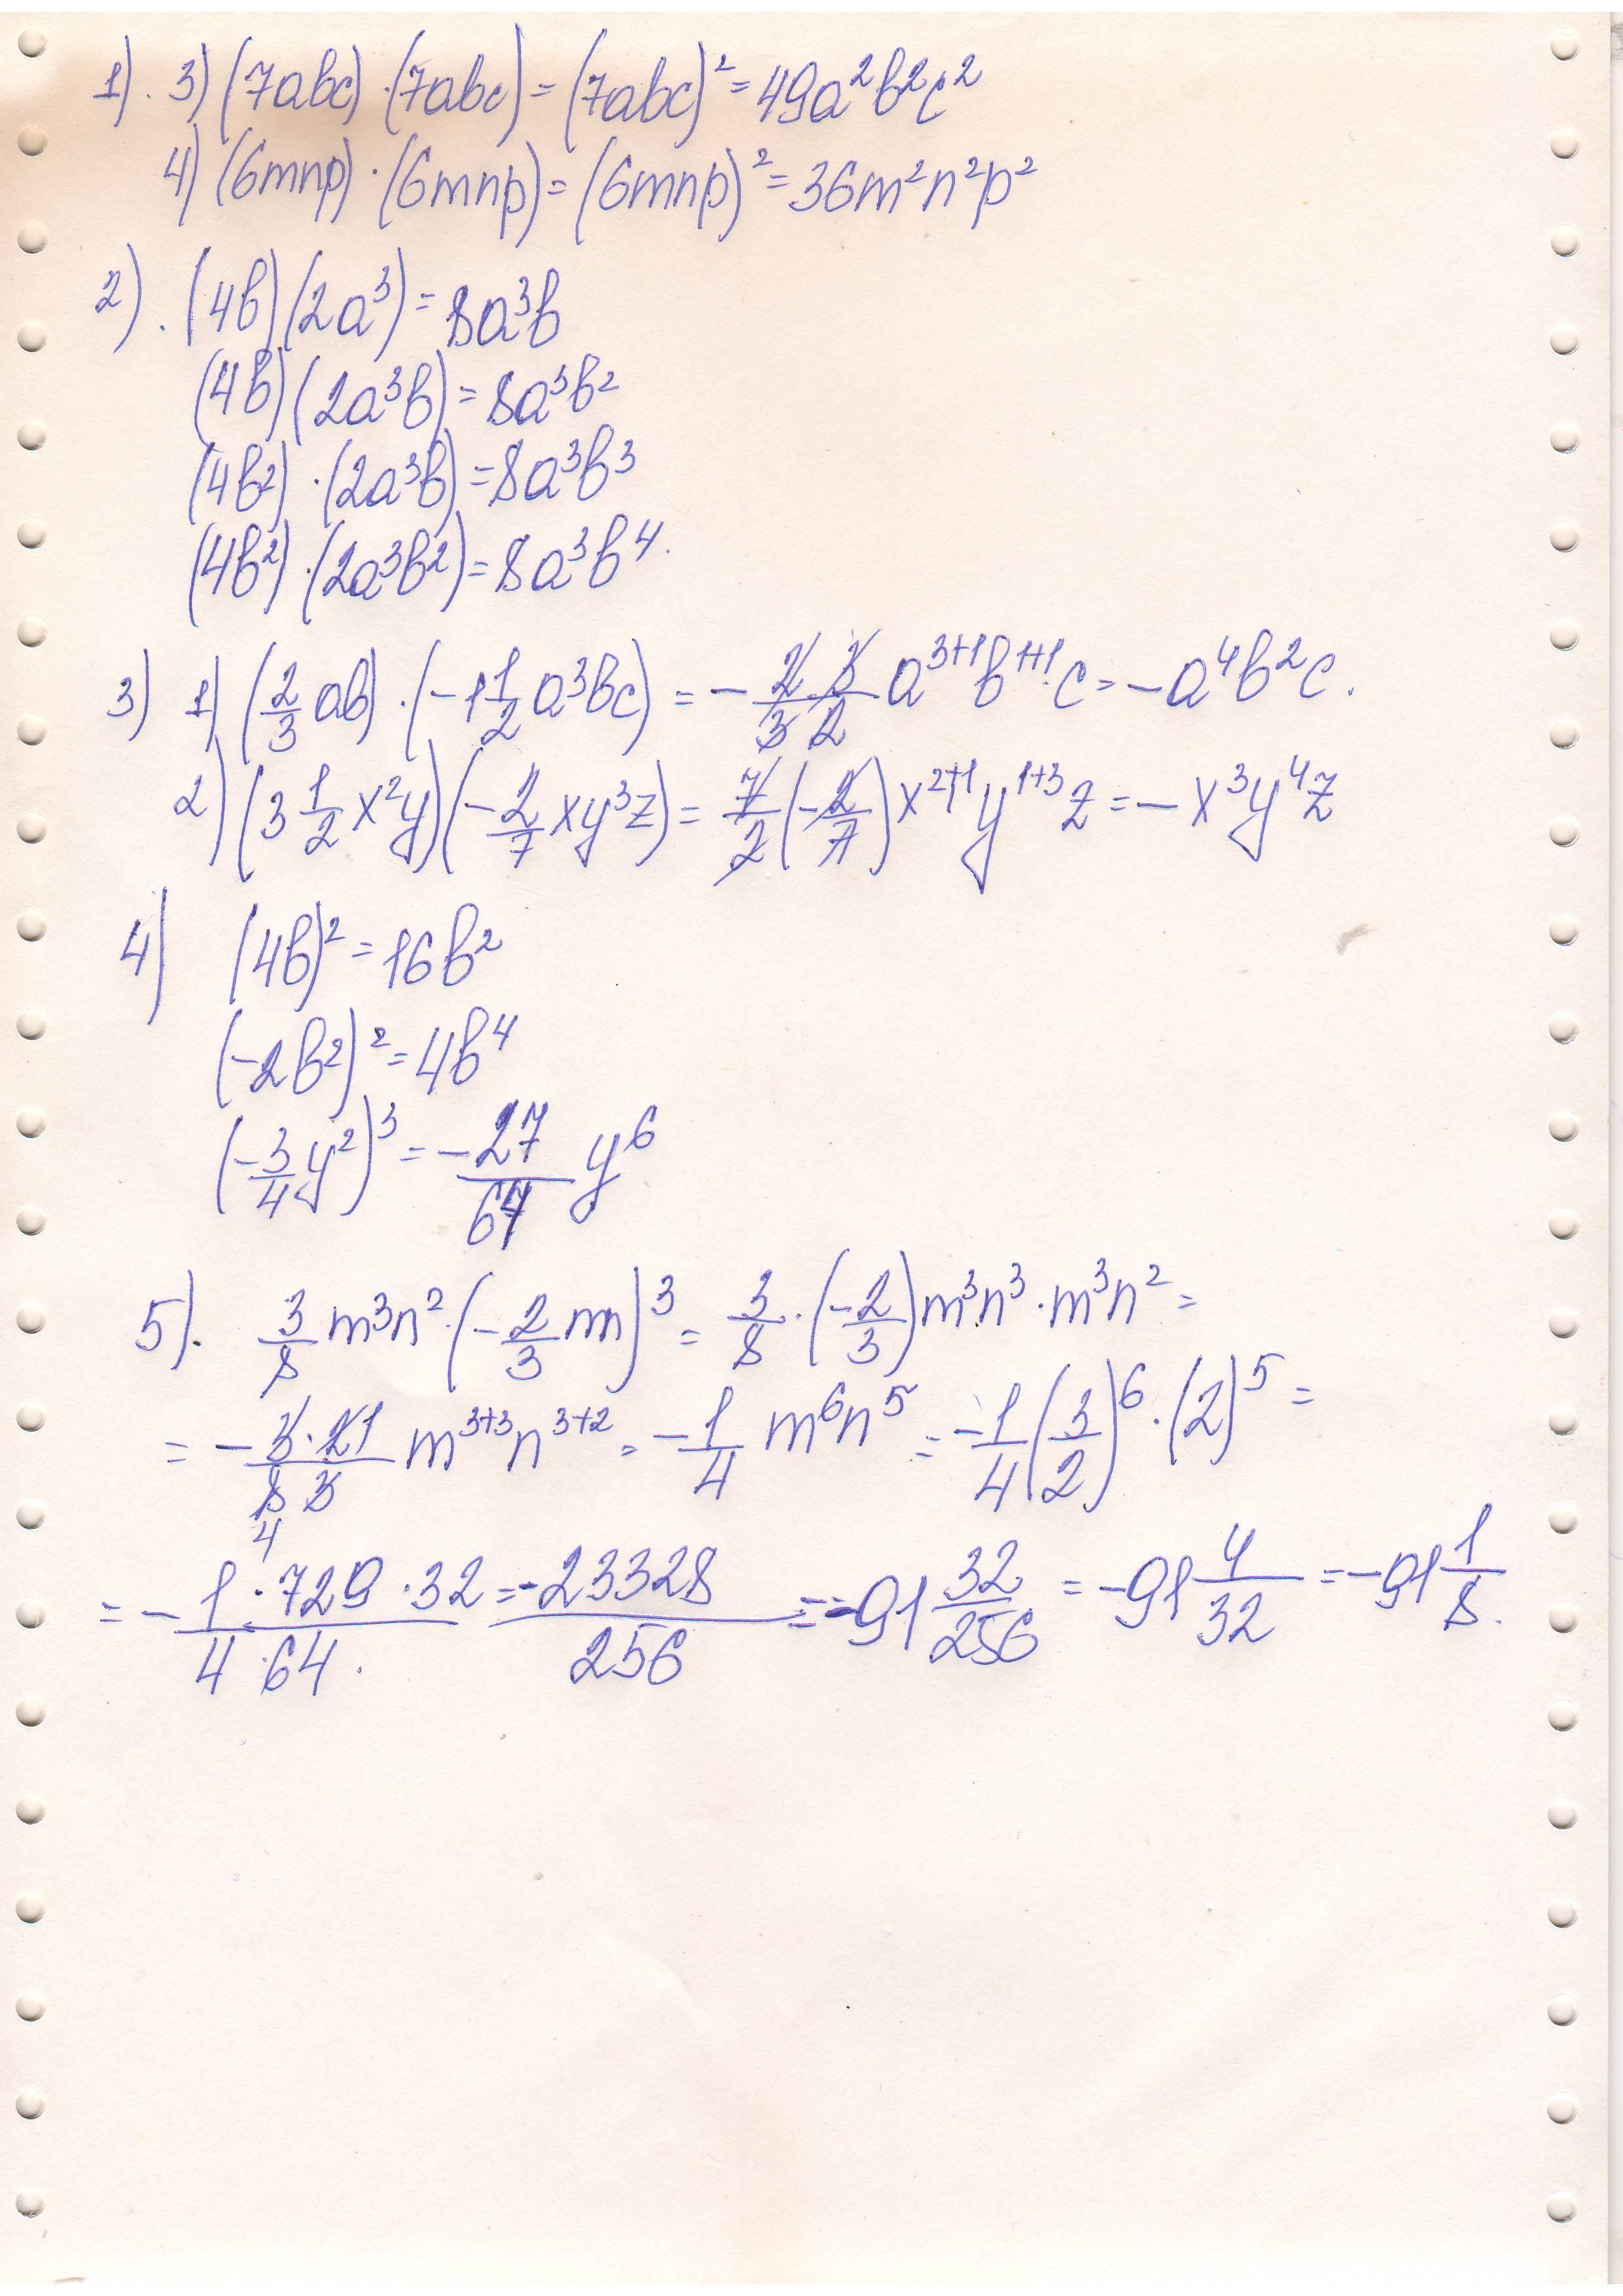 1). 3) (7abc)·(7abc) = (7abc)² = 49a²b²c²
4) (6mnp)·(6mnp) = (6mnp)² = 36m²n²p²
2). (4b)(2a³) = 8a³b
(4b)(2a³b) = 8a³b²
(4b²)·(2a³b) = 8a³b³
(4b²)·(2a³b²) = 8a³b⁴.
3) 1) (2/3 ab)·(-1 1/2 a³bc) = - (2·3)/(3·2) a³⁺¹b¹⁺¹·c = -a⁴b²c.
2) (3 1/2 x²y)(-2/7 xy³z) = 7/2 (-2/7) x²⁺¹y¹⁺³z = -x³y⁴z
4) (4b)² = 16b²
(-2b²)² = 4b⁴
(-3/4 y²)³ = -27/64 y⁶
5). 3/8 m³n²·(-2/3 mn)³ = 3/8·(-2/3)m³n³·m³n² =
= - (3·2 1)/(8 3) m³⁺³n³⁺² = -1/4 m⁶n⁵ = -1/4 (3/2)⁶·(2)⁵ =
4
= - (1·729·32)/(4·64). = -23328/256 = -91 32/256 = -91 4/32 = -91 1/8.